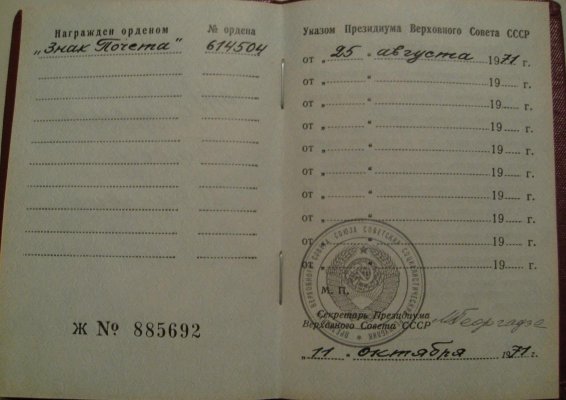 Награжден орденом № ордена
„Знак Почета“ 614504
Ж № 885692
Указом Президиума Верховного Совета СССР
от „ 25 “ августа 1971 г.
от „ “ 19 г.
от „ “ 19 г.
от „ “ 19 г.
от „ “ 19 г.
от „ “ 19 г.
от „ “ 19 г.
от „ “ 19 г.
от „ “ 19 г.
от „ “ 19 г.
М. П.
Секретарь Президиума
Верховного Совета СССР
МГеоргадзе
„ 11 “ октября 1971 г.